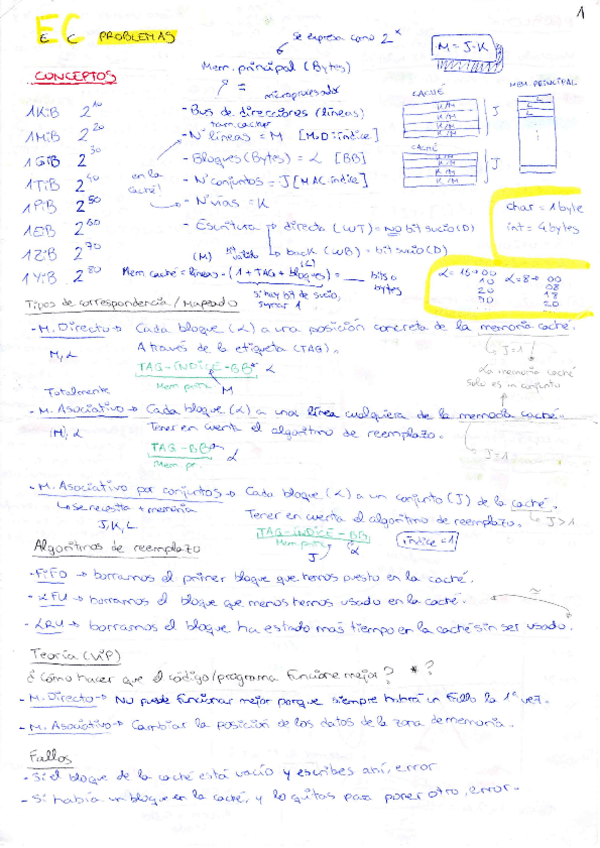 1
EC PROBLEMAS
Se expresa como 2^x
M = J·K
CONCEPTOS
Mem. principal (Bytes)
= microprocesador
CACHÉ
MEM. PRINCIPAL
1KiB 2^10
1MiB 2^20
1GiB 2^30
1TiB 2^40
1PiB 2^50
1EiB 2^60
1ZiB 2^70
1YiB 2^80
- Bus de direcciones (líneas)
- Nº líneas = M [M.D: índice]
- Bloques (Bytes) = L [BB]
- Nº conjuntos = J [M.AC. índice]
- Nº vías = K
en la caché!
- Escritura directa (WT) = NO bit sucio (D)
back (WB) = bit sucio (D)
K/M
K/M
K/M
K/M
J
CACHÉ
K/M
K/M
K/M
K/M
J
char = 1 byte
int = 4 bytes
(M) Bit validez (L)
Mem caché = líneas · (1 + TAG + bloques) = bits o bytes
si hay bit de sucio, sumar 1
L = 16 → 00
10
20
30
L = 8 → 00
08
18
20
Tipos de correspondencia / Mapeado
- M. Directo → Cada bloque (L) a una posición concreta de la memoria caché.
M, L
A través de la etiqueta (TAG).
J = 1
TAG - ÍNDICE - BB L
Mem princ. M
La memoria caché solo es un conjunto
Totalmente
- M. Asociativo → Cada bloque (L) a una línea cualquiera de la memoria caché.
M, L
Tener en cuenta el algoritmo de reemplazo.
TAG - BB L
Mem pr.
J = 1
- M. Asociativo por conjuntos → Cada bloque (L) a un conjunto (J) de la caché.
↳ se necesita + memoria
Tener en cuenta el algoritmo de reemplazo.
J > 1
J, K, L
TAG - ÍNDICE - BB
Mem princ. J L
índice = 1
Algoritmos de reemplazo
- FIFO → borramos el primer bloque que hemos puesto en la caché.
- LFU → borramos el bloque que menos hemos usado en la caché.
- LRU → borramos el bloque ha estado más tiempo en la caché sin ser usado.
Teoría (VIP)
¿Cómo hacer que el código/programa funcione mejor? * ?
- M. Directo → No puede funcionar mejor porque siempre habrá un fallo la 1ª vez.
- M. Asociativo → Cambiar la posición de los datos de la zona de memoria.
Fallos
- Si el bloque de la caché está vacío y escribes ahí, error
- Si había un bloque en la caché, y lo quitas para poner otro, error.